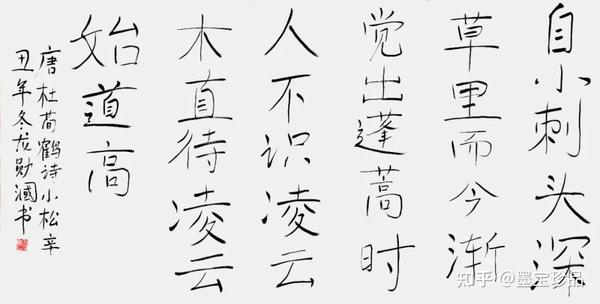 自小刺头深
草里而今渐
觉出蓬蒿时
人不识凌云
木直待凌云
始道高
唐杜荀鹤诗小松辛
丑年冬龙勋漍书
知乎 @墨宝珍品